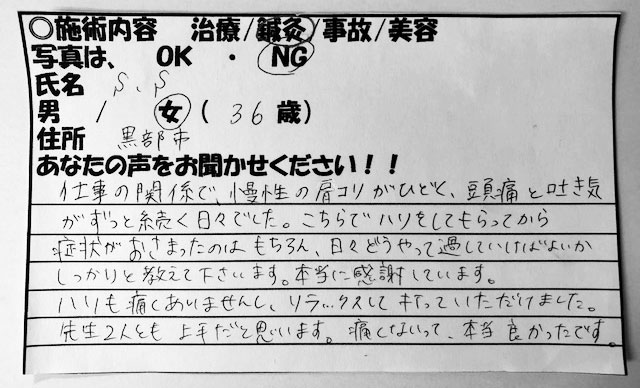 ○施術内容　治療/鍼灸/事故/美容
写真は、　OK　・　NG
氏名　S.S
男　/　女　(　36　歳)
住所　黒部市
あなたの声をお聞かせください！！
仕事の関係で、慢性の肩コリがひどく、頭痛と吐き気
がずっと続く日々でした。こちらでハリをしてもらってから
症状がおさまったのはもちろん、日々どうやって過していけばよいか
しっかりと教えて下さいます。本当に感謝しています。
ハリも痛くありませんし、リラックスして打っていただけました。
先生2人とも上手だと思います。痛くないって、本当良かったです。